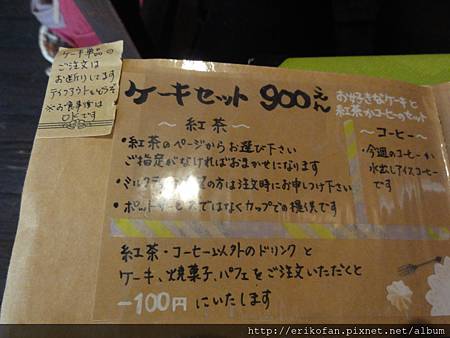 ケーキ単品の
ご注文は
お断りしてます
テイクアウトもどうぞ
※お食事後は
OKです
ケーキセット 900えん
お好きなケーキと
紅茶かコーヒーのセット
～紅茶～
・紅茶のページからお選び下さい
ご指定がなければおまかせになります
・ミルクティーご希望の方は注文時にお申しつけ下さい
・ポットサービスではなくカップでの提供です
～コーヒー～
・今週のコーヒーか
水出しアイスコーヒー
です
紅茶・コーヒー以外のドリンクと
ケーキ、焼菓子、パフェをご注文いただくと
－100円にいたします
http://erikofan.pixnet.net/album